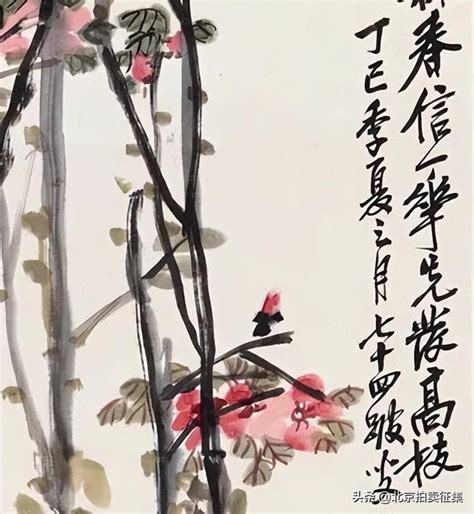 春信一华先发高枝
丁巳季夏之月七十四跛叟
头条@北京拍卖征集